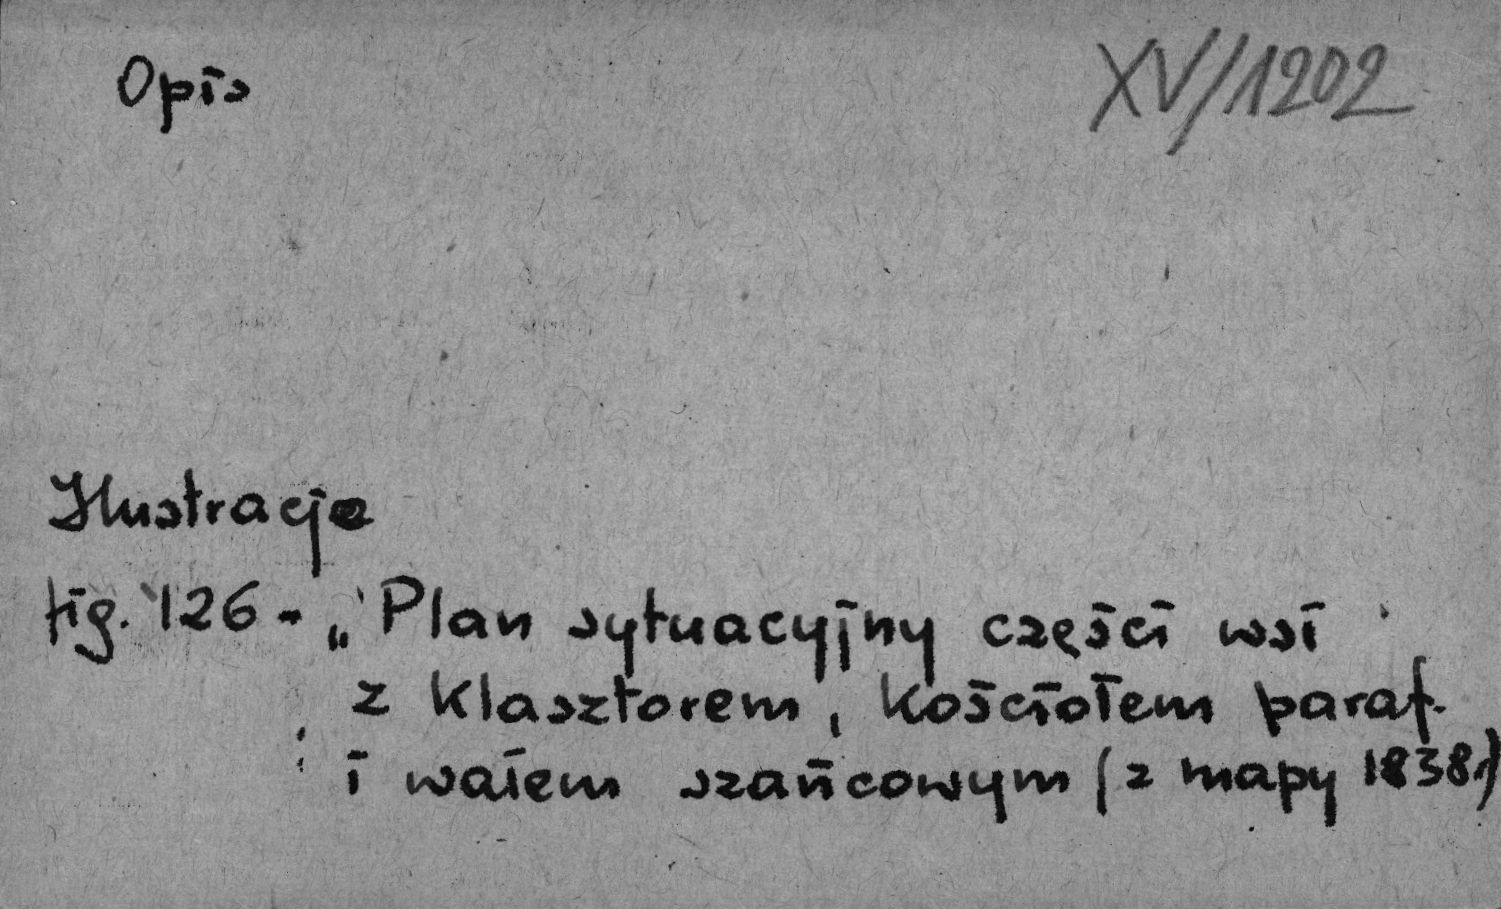 Opis
XV/1202
Ilustracje
fig. 126 - „Plan sytuacyjny części wsi
z klasztorem, kościołem paraf.
i wałem szańcowym (z mapy 1838r)